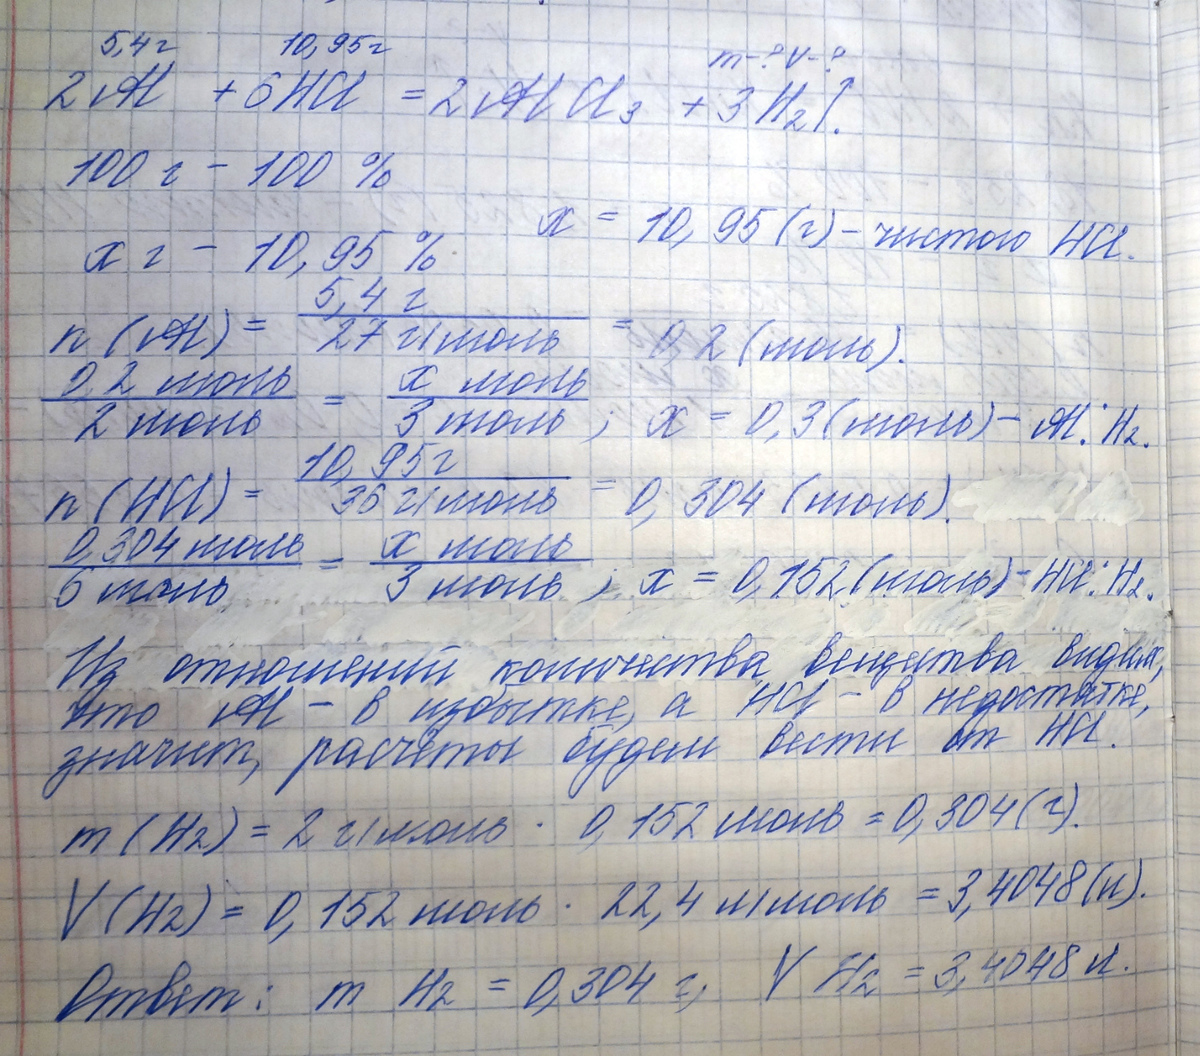 5,4г 10,95г m-? V-?
2Al + 6HCl = 2AlCl₃ + 3H₂↑.
100 г - 100 %
x г - 10,95 % x = 10,95 (г) - чистого HCl.
n (Al) = 5,4 г / 27 г/моль = 0,2 (моль).
0,2 моль / 2 моль = x моль / 3 моль ; x = 0,3 (моль) - Al : H₂.
n (HCl) = 10,95г / 36 г/моль = 0,304 (моль).
0,304 моль / 6 моль = x моль / 3 моль ; x = 0,152 (моль) - HCl : H₂.
Из отношений количества вещества видим,
что Al - в избытке, а HCl - в недостатке,
значит, расчёты будем вести от HCl.
m (H₂) = 2 г/моль · 0,152 моль = 0,304 (г).
V (H₂) = 0,152 моль · 22,4 л/моль = 3,4048 (л).
Ответ: m H₂ = 0,304 г, V H₂ = 3,4048 л.